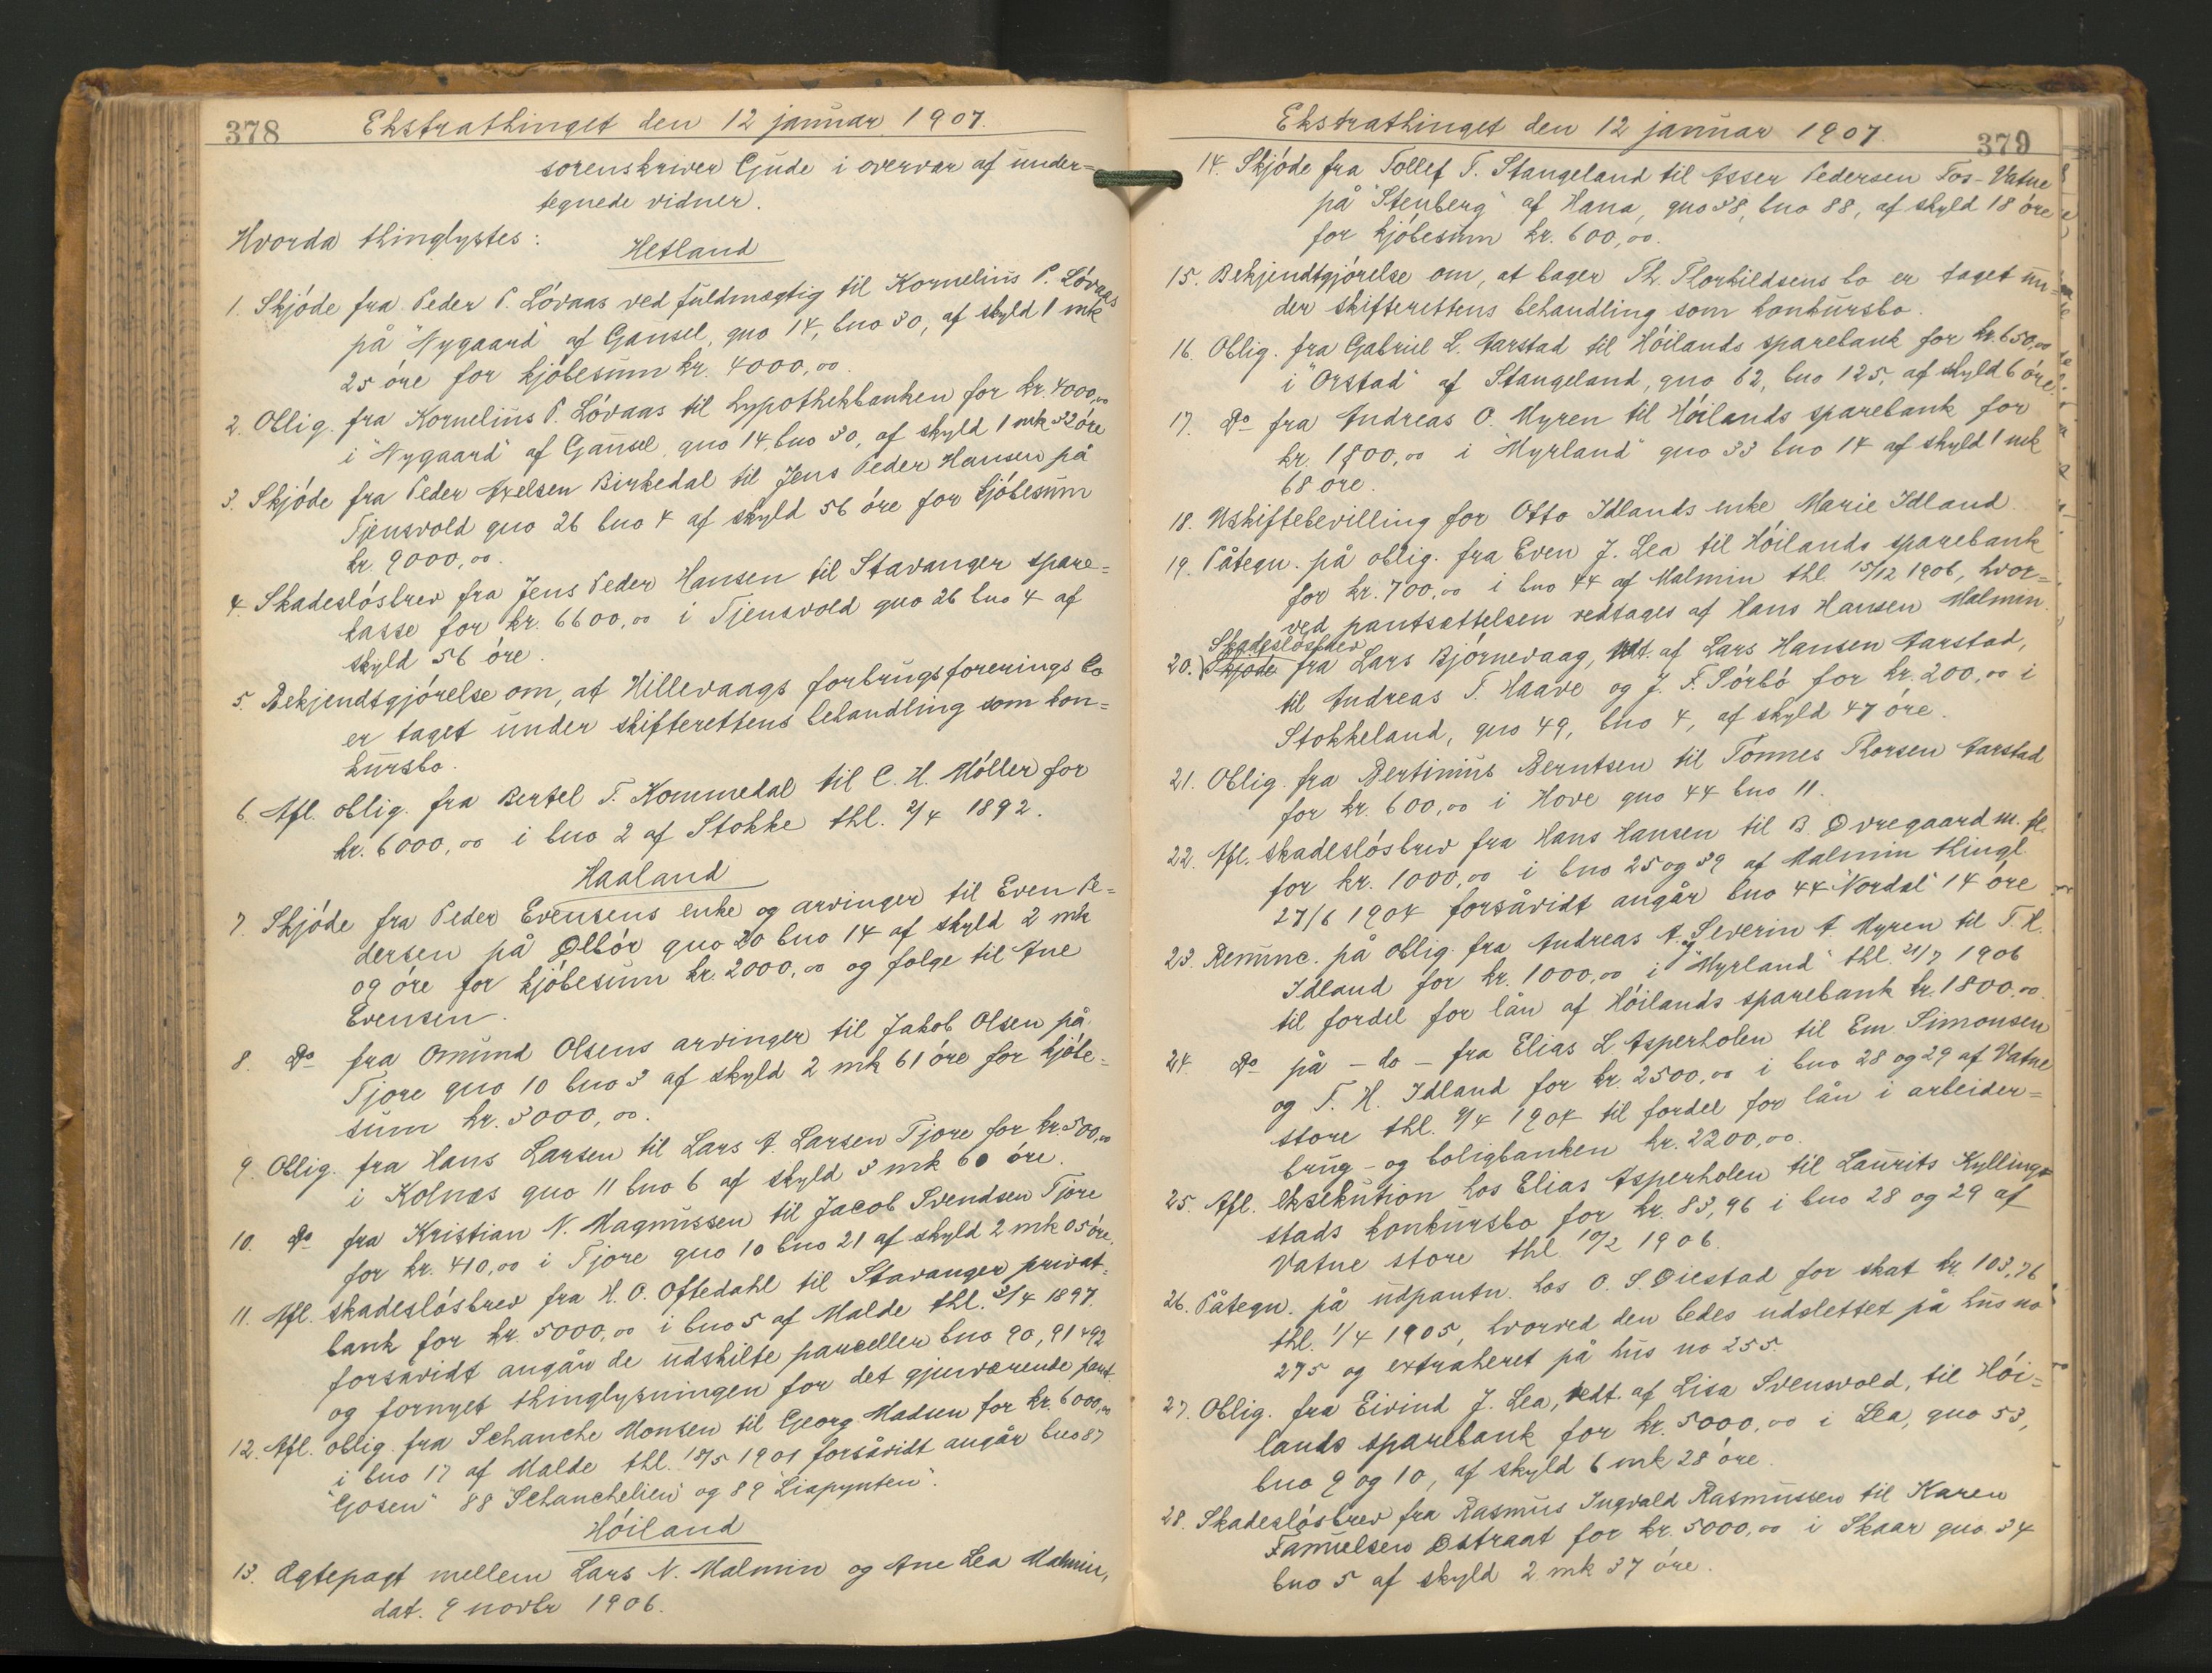 378 Ekstrathinget den 12 januar 1907.
sorenskriver Gude i overvær af under=
tegnede vidner.
Hvorda thinglystes:
Hetland
1. Skjöde fra Peder P. Lövaas ved fuldmægtig til Kornelius P. Lövaas
på "Nygaard" af Gausel, gno 14, bno 30, af skyld 1 mk
25 öre for kjöbesum kr. 4000,00.
2. Oblig. fra Kornelius P. Lövaas til hypothekbanken for kr. 4000,00
i "Nygaard" af Gausel, gno 14, bno 30, af skyld 1 mk 32 öre
3. Skjöde fra Peder Axelsen Birkedal til Jens Peder Hansen på
Tjensvold gno 26 bno 4 af skyld 56 öre for kjöbesum
kr. 9000,00.
4. Skadeslösbrev fra Jens Peder Hansen til Stavanger spare=
kasse for kr. 6600,00 i Tjensvold gno 26 bno 4 af
skyld 56 öre.
5. Bekjendtgjörelse om, at Hillevaags forbrugsforenings bo
er taget under skifterettens behandling som kon=
kursbo.
6. Afl. oblig. fra Bertel T. Kommedal til C. H. Möller for
kr. 6000,00 i bno 2 af Stokke thl. 2/4 1892.
Haaland
7. Skjöde fra Peder Evensens enke og arvinger til Even Pe=
dersen på Ølbör gno 20 bno 14 af skyld 2 mk
09 öre for kjöbesum kr. 2000,00 og folge til Ane
Evensen.
8. Do fra Omund Olsens arvinger til Jakob Olsen på
Tjore gno 10 bno 3 af skyld 2 mk 61 öre for kjöbe=
sum kr. 3000,00.
9. Oblig. fra Hans Larsen til Lars A. Larsen Tjore for kr. 500,00
i Kolnæs gno 11 bno 6 af skyld 3 mk 60 öre.
10. Do fra Kristian N. Magnussen til Jacob Svendsen Tjore
for kr. 410,00 i Tjore gno 10 bno 21 af skyld 2 mk 05 öre.
11. Afl. skadeslösbrev fra H. O. Oftedahl til Stavanger privat=
bank for kr. 5000,00 i bno 5 af Malde thl. 3/4 1897.
forsåvidt angår de udskilte parceller bno 90, 91 + 92
og fornyet thinglysningen for det gjenværende pant.
12. Afl. oblig. fra Schanche Monsen til Georg Madsen for kr. 6000,00
i bno 17 af Malde thl. 18/5 1901 forsåvidt angår bno 87
"Gosen" 88 "Schanchelien" og 89 "Liapynten".
Höiland
13. Ægtepagt mellem Lars N. Malmin og Ane Lea Malmin,
dat. 9 novbr 1906.
Ekstrathinget den 12 januar 1907. 379
14. Skjöde fra Tollef T. Stangeland til Asser Pedersen Fos-Vatne
på "Stenberg" af Hana, gno 38, bno 88, af skyld 18 öre
for kjöbesum kr. 600,00.
15. Bekjendtgjörelse om, at bager Th. Thorkildsens bo er taget un=
der skifterettens behandling som konkursbo.
16. Oblig. fra Gabriel L. Aarstad til Höilands sparebank for kr. 650,00
i "Orstad" af Stangeland, gno 62, bno 125, af skyld 6 öre.
17. Do fra Andreas O. Myren til Höilands sparebank for
kr. 1800,00 i "Myrland" gno 33 bno 14 af skyld 1 mk
68 öre.
18. Uskiftebevilling for Otto Idlands enke Marie Idland.
19. Påtegn. på oblig. fra Even J. Lea til Höilands sparebank
for kr. 700,00 i bno 44 af Malmin thl. 15/12 1906, hvor=
ved pantsættelsen vedtages af Hans Hansen Malmin.
Skadeslösbrev
20. Skjöde fra Lars Björnevaag, vedt. af Lars Hansen Aarstad,
til Andreas T. Haave og J. F. Sörbö for kr. 200,00 i
Stokkeland, gno 49, bno 4, af skyld 47 öre.
21. Oblig. fra Bertinius Berntsen til Tönnes Thorsen Aarstad
for kr. 600,00 i Hove gno 44 bno 11.
22. Afl. skadeslösbrev fra Hans Hansen til B. Øvregaard m. fl.
for kr. 1000,00 i bno 25 og 39 af Malmin thingl.
27/6 1904 forsåvidt angår bno 44 "Nordal" 14 öre
23. Renunc. på oblig. fra Andreas A. og Severin A. Myren til T. H.
Idland for kr. 1000,00 i "Myrland" thl. 21/7 1906
til fordel for lån af Höilands sparebank kr. 1800,00.
24. Do på - do - fra Elias L Asperholen til Em. Simonsen
og T. H. Idland for kr. 2500,00 i bno 28 og 29 af Vatne
store thl. 9/4 1904 til fordel for lån i arbeider=
brug- og boligbanken kr. 2200,00.
25. Afl. eksekution hos Elias Asperholen til Laurits Kyllings=
stads konkursbo for kr. 83,96 i bno 28 og 29 af
Vatne store thl 10/2 1906.
26. Påtegn. på udpantn. hos O. S. Øiestad for skat kr. 103,76
thl. 1/4 1905, hvorved den bedes udslettet på hus no
275 og extraheret på hus no 255.
27. Oblig. fra Eivind J. Lea, vedt. af Lisa Svensvold, til Höi=
lands sparebank for kr. 5000,00 i Lea, gno 53,
bno 9 og 10, af skyld 6 mk 28 öre.
28. Skadeslösbrev fra Rasmus Ingvald Rasmussen til Karen
Samuelsen Østraat for kr. 5000,00 i Skaar gno 34
bno 5 af skyld 2 mk 37 öre.